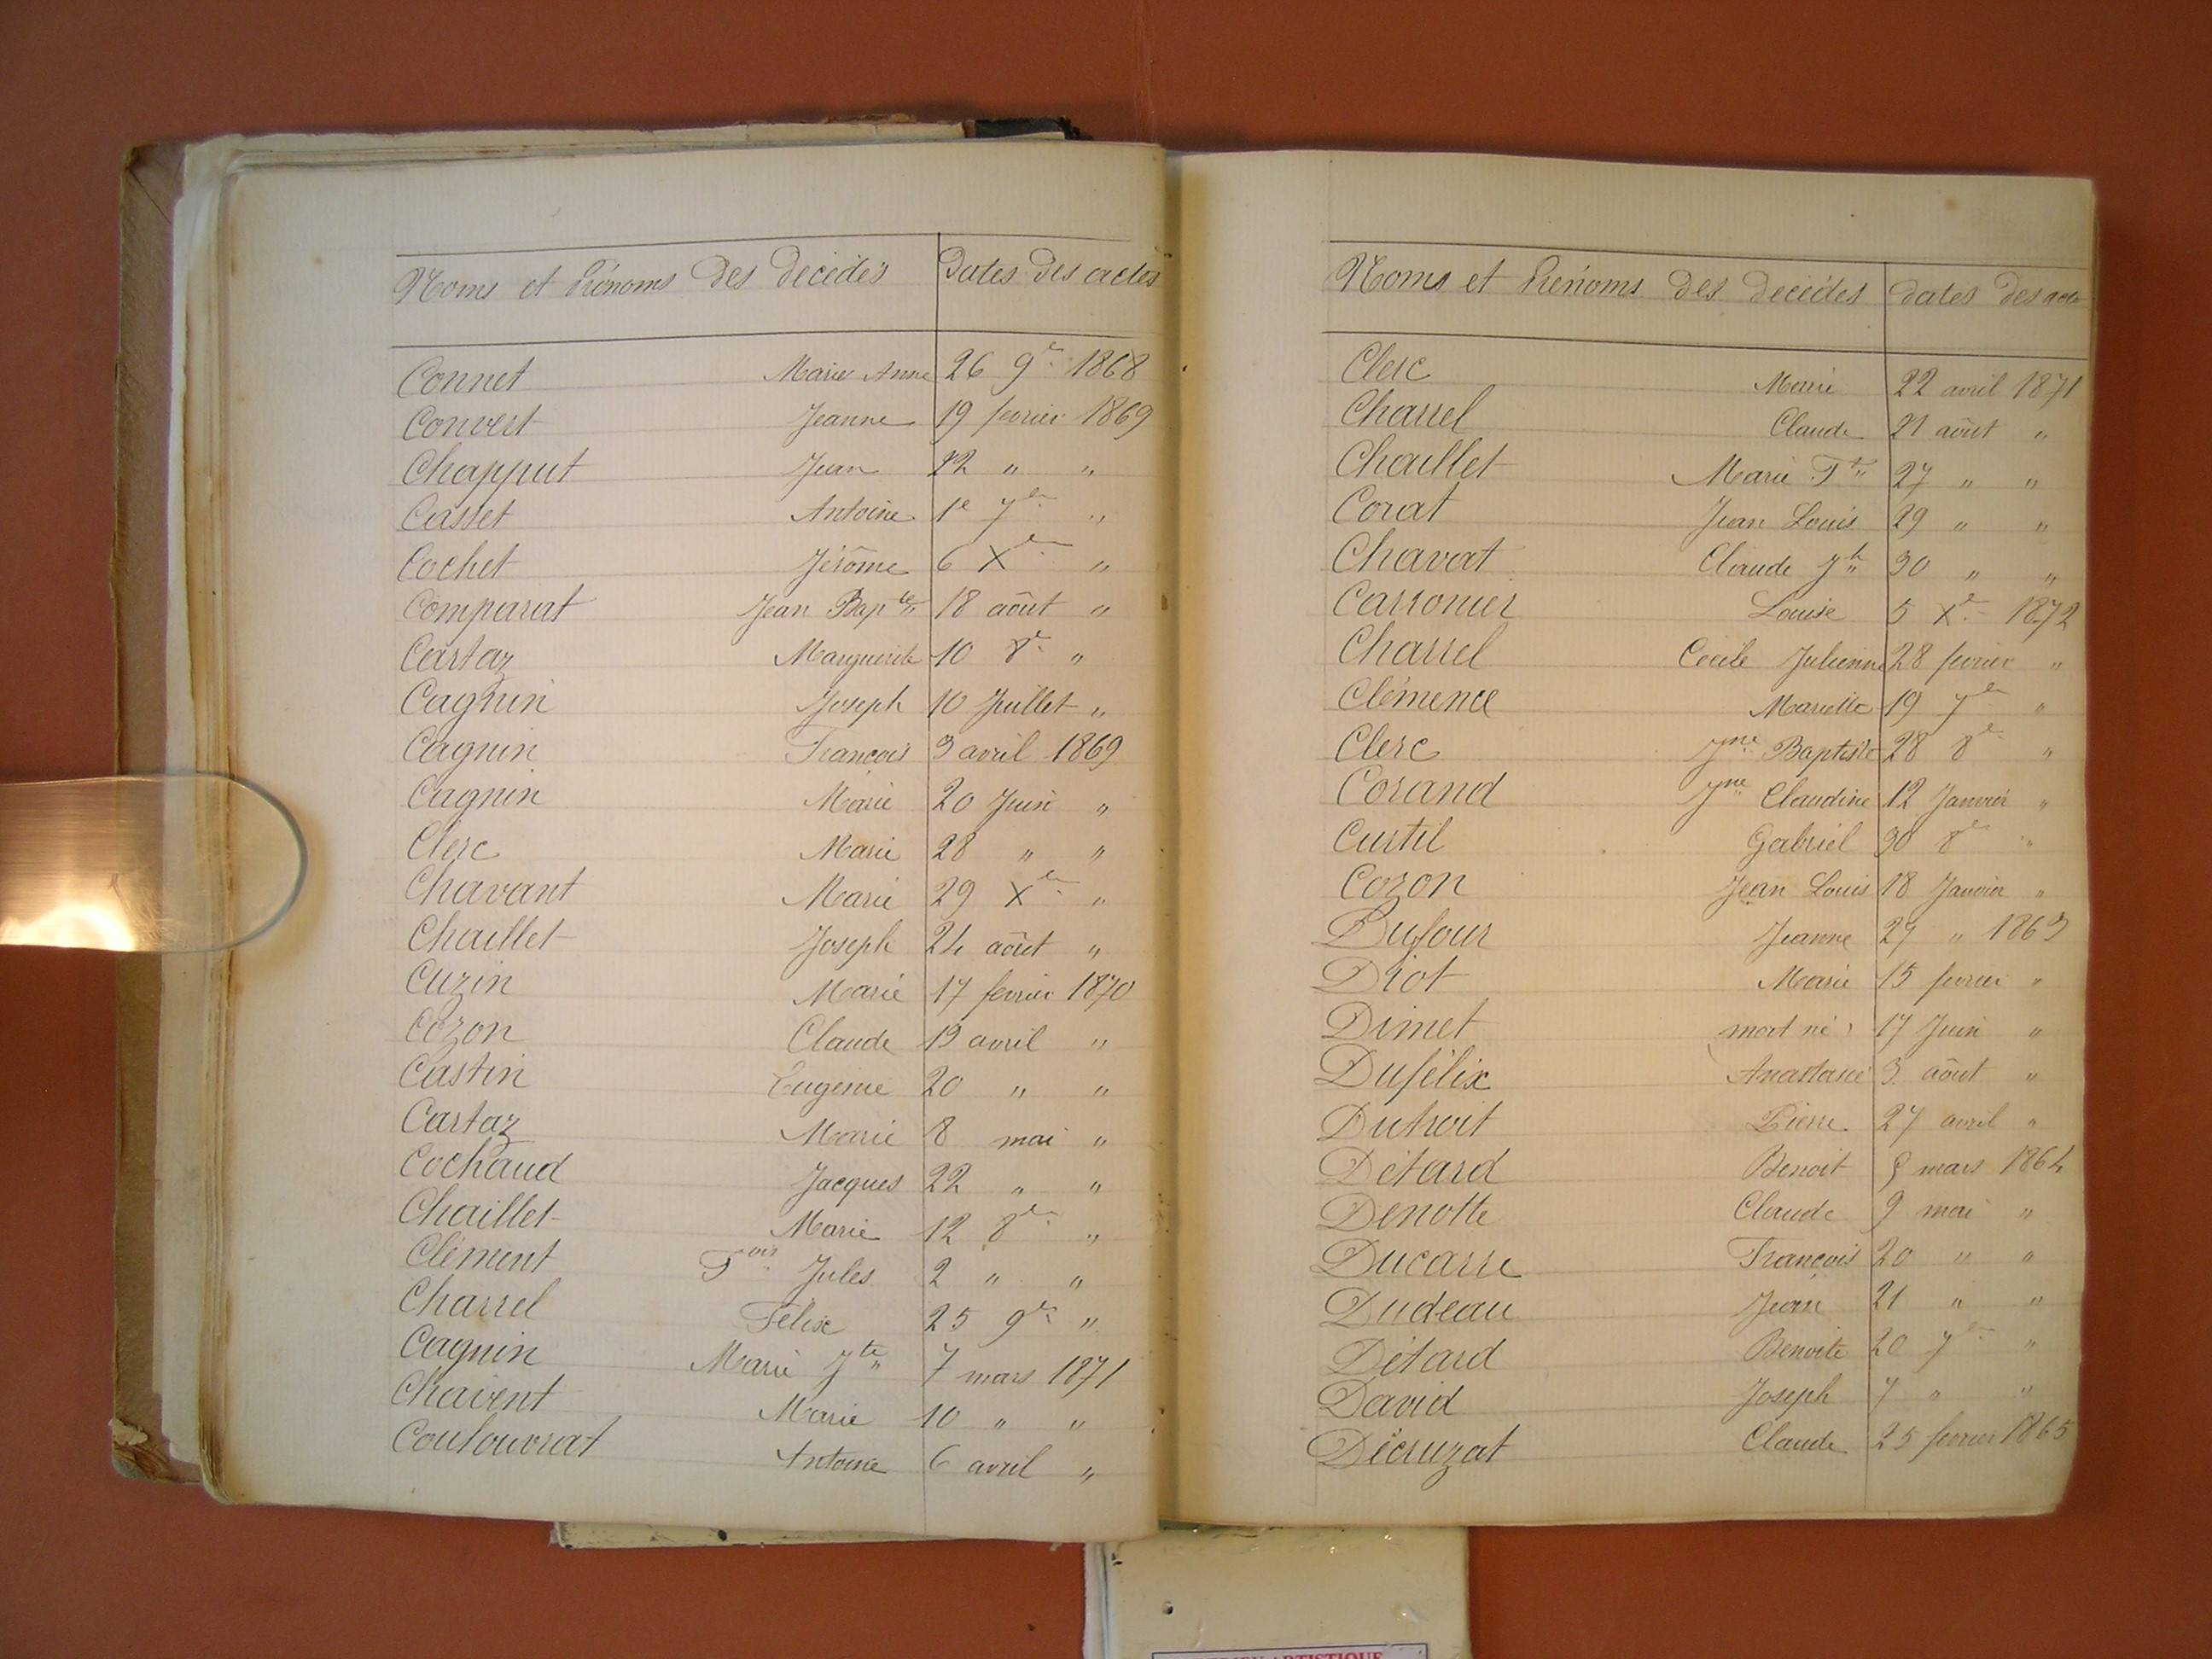 Noms et Prénoms des décédés Dates des actes
Connet Marie Anne 26 9bre 1868
Convert Jeanne 19 fevrier 1869
Chapput Jean 22 " "
Casset Antoine 1e 7bre "
Cochet Jérôme 6 Xbre "
Comparat Jean Bapte 18 août "
Cartaz Marguerite 10 8re "
Cagnin Joseph 10 Juillet "
Cagnin François 3 avril 1869
Cagnin Marie 20 Juin "
Clerc Marie 28 " "
Chavant Marie 29 Xbre "
Chaillet Joseph 24 août "
Cuzin Marie 17 fevrier 1870
Cozon Claude 19 avril "
Castin Eugenie 20 " "
Cartaz Marie 8 mai "
Cochaud Jacques 22 " "
Chaillet Marie 12 8bre "
Clément Fois Jules 2 " "
Charrel Félix 25 9bre "
Cagnin Marie Jte 7 mars 1871
Chavent Marie 10 " "
Coulouvrat Antoine 6 avril "
Noms et Prénoms des décédés Dates des actes
Clerc Marie 22 avril 1871
Charrel Claude 21 août "
Chaillet Marie Fte 27 " "
Corat Jean Louis 29 " "
Chavat Claude Jh 30 " "
Carronier Louise 5 Xe 1872
Charrel Cécile Julienne 28 fevrier "
Clémence Mariette 19 7bre "
Clerc Jne Baptiste 28 8re "
Corand Jne Claudine 12 Janvier "
Curtil Gabriel 30 8re "
Cozon Jean Louis 18 Janvier "
Dufour Jeanne 27 " 1863
Driot Marie 15 fevrier "
Dimet mort né 17 Juin "
Dufélix Anastasie 3 août "
Dutroit Pierre 27 avril "
Détard Benoit mars 1864
Denotte Claude 9 mai "
Ducarre François 20 " "
Dudeau Jean 21 " "
Détard Benoite 20 7bre "
David Joseph 7 " "
Décruzat Claude 25 fevrier 1865